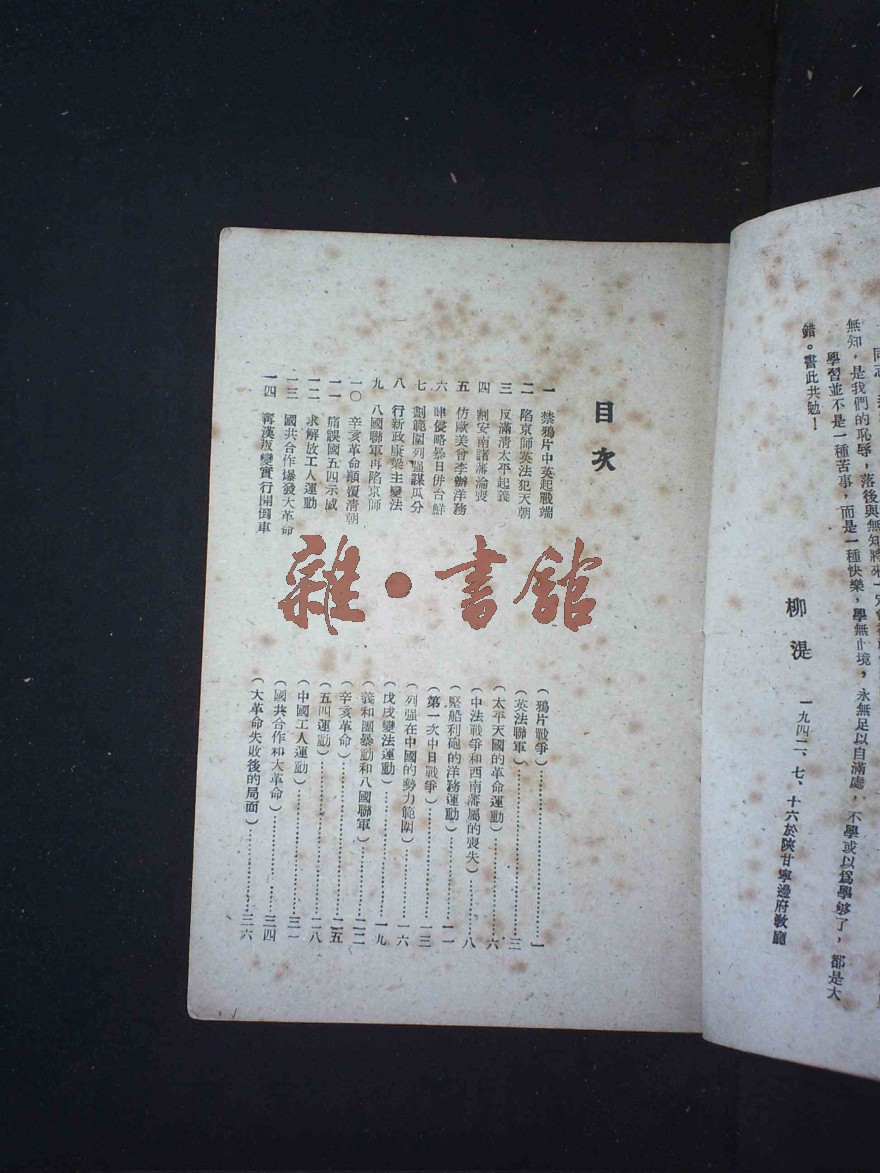 無知，是我們的恥辱，落後與無知將來一定會
學習並不是一種苦事，而是一種快樂，學無止境，永無足以自滿處，不學或以爲學够了，都是大
錯。書此共勉！
柳湜
一九四二、七、十六於陝甘寧邊府教廳
目次
一 禁鴉片中英起戰端（鴉片戰爭）……一
二 陷京師英法犯天朝（英法聯軍）……三
三 反滿清太平起義（太平天國的革命運動）……六
四 割安南諸藩淪喪（中法戰爭和西南藩屬的喪失）……八
五 仿歐美曾李辦洋務（堅船利砲的洋務運動）……一一
六 肆侵略暴日併台鮮（第一次中日戰爭）……一三
七 劃範圍列强謀瓜分（列强在中國的勢力範圍）……一六
八 行新政康梁主變法（戊戌變法運動）……一九
九 八國聯軍再陷京師（義和團暴動和八國聯軍）……二二
一〇 辛亥革命顚覆清朝（辛亥革命）……二五
一一 痛誤國五四示威（五四運動）……二八
一二 求解放工人運動（中國工人運動）……三一
一三 國共合作爆發大革命（國共合作和大革命）……三四
一四 寗漢叛變實行開倒車（大革命失敗後的局面）……三六
雜·書館